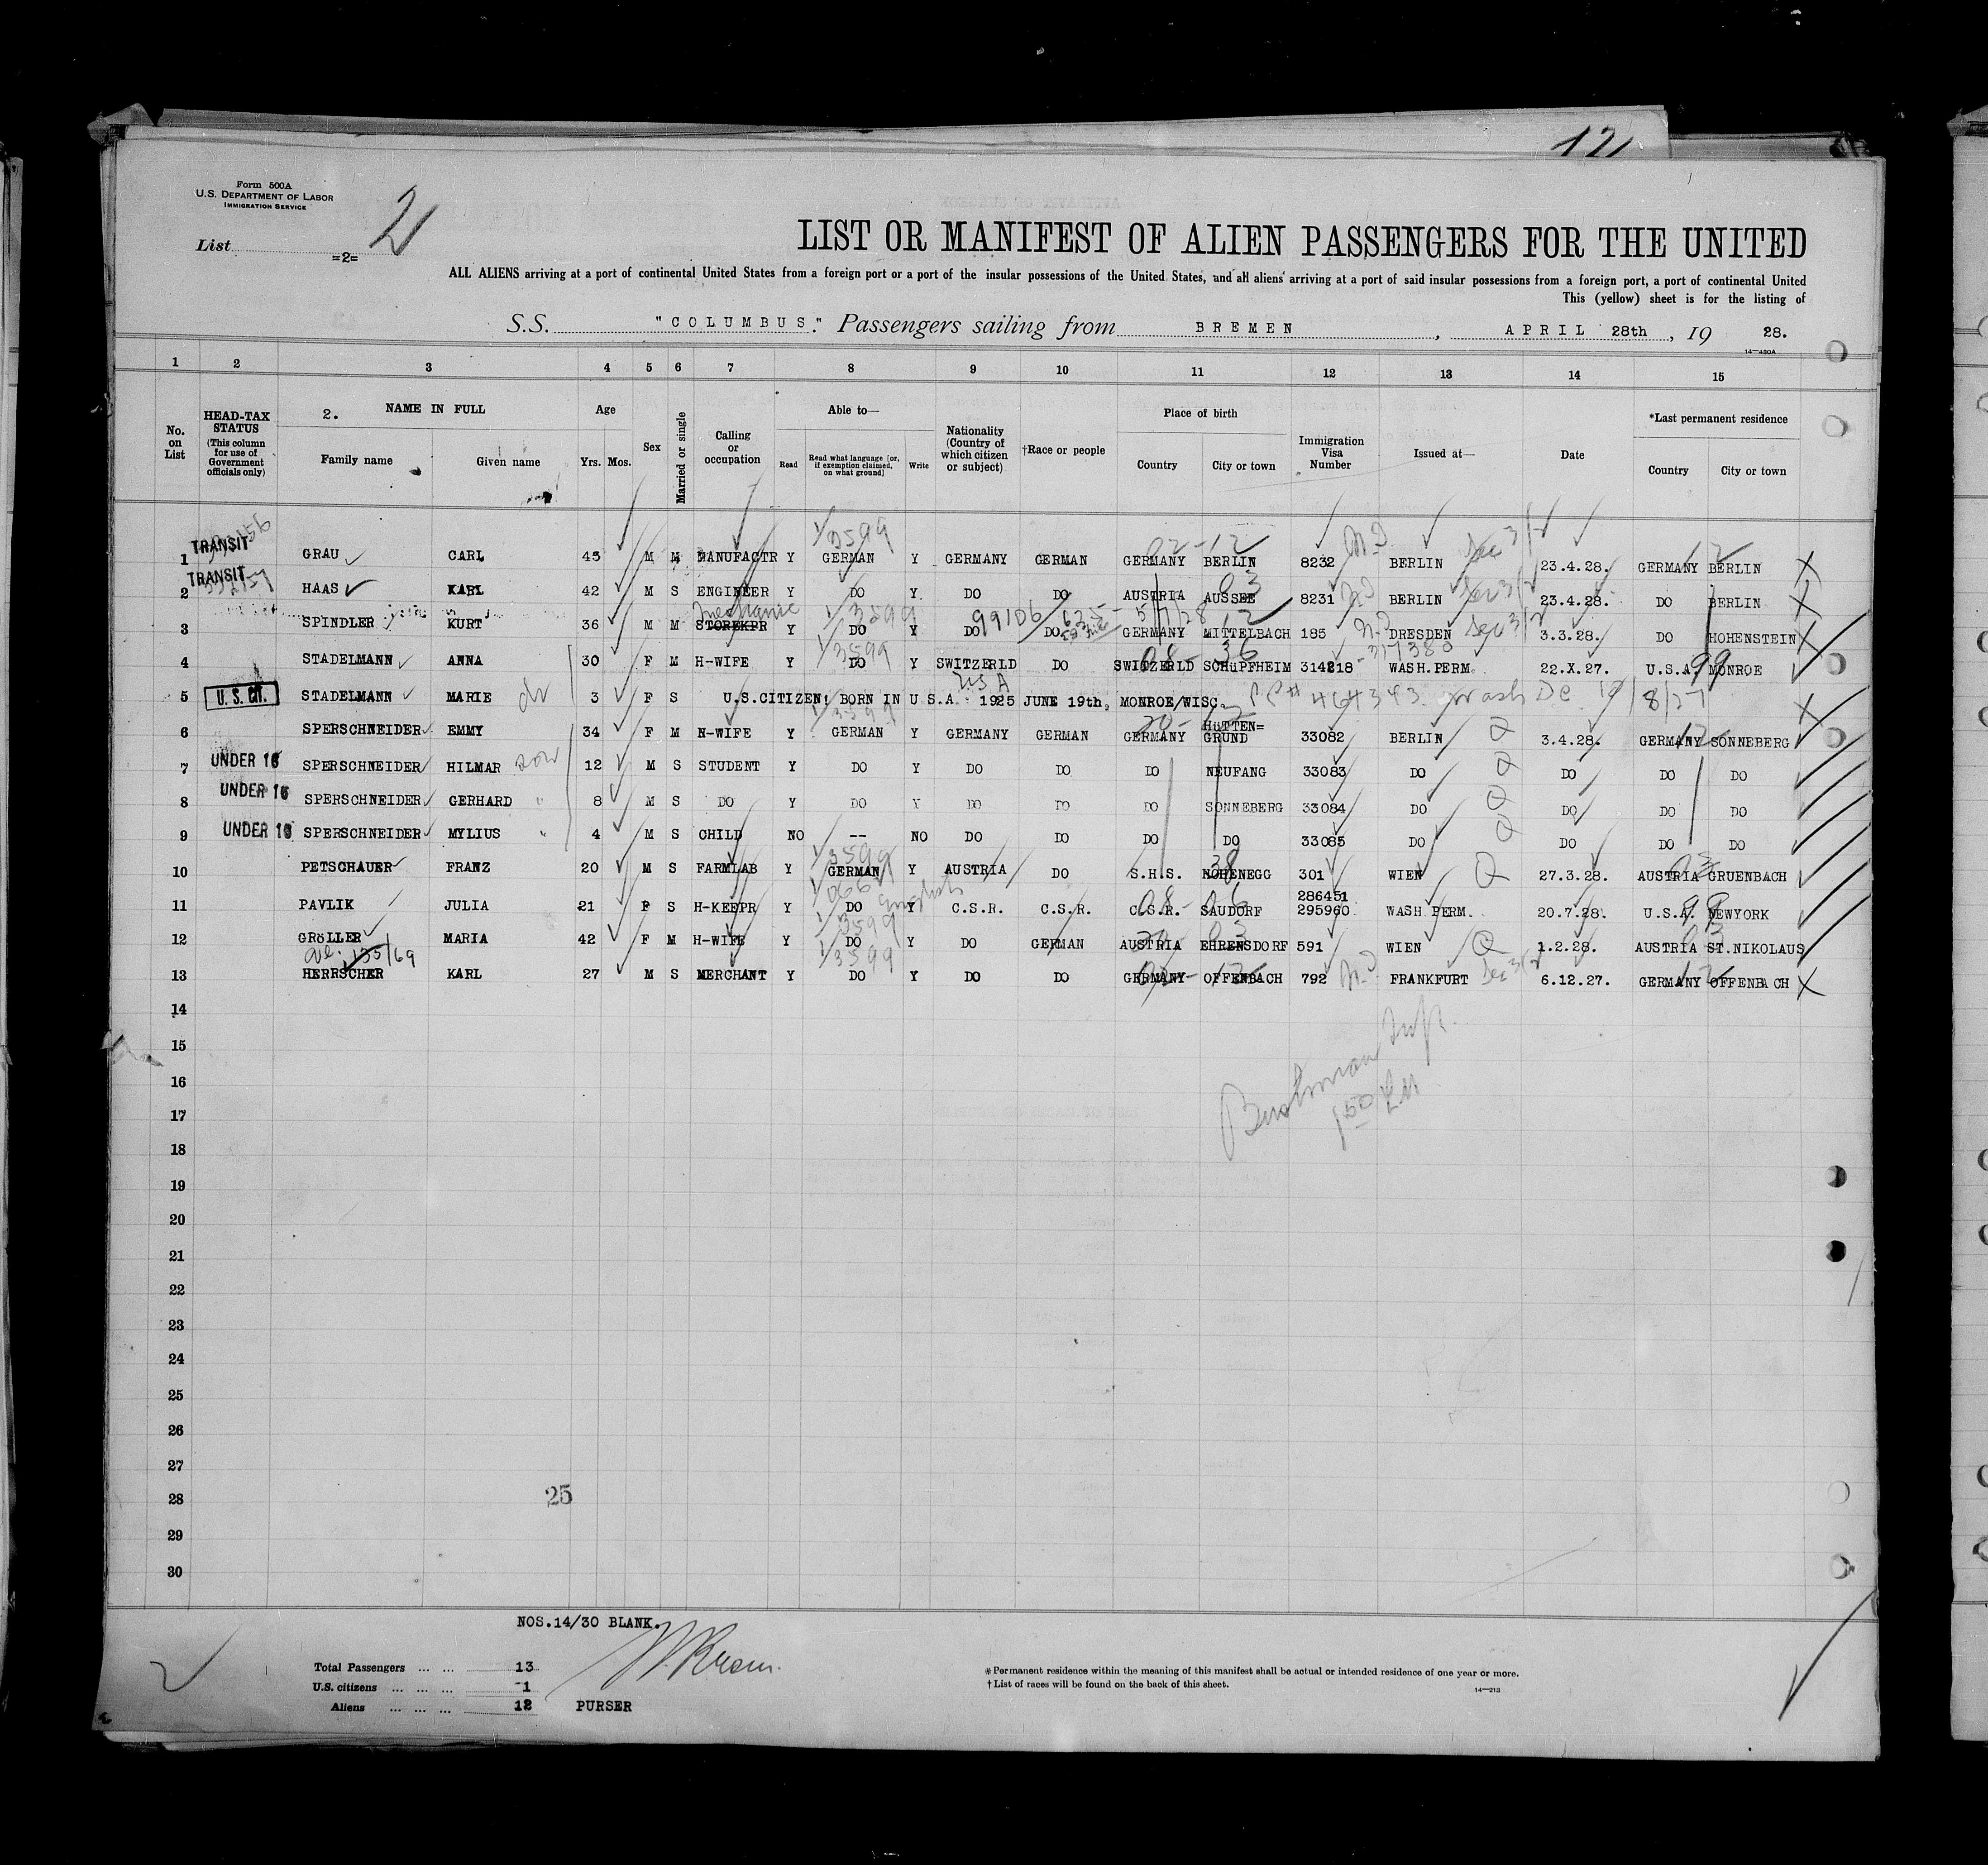 12
Form 500A
U.S. DEPARTMENT OF LABOR
IMMIGRATION SERVICE
List =2= 2
LIST OR MANIFEST OF ALIEN PASSENGERS FOR THE UNITED
ALL ALIENS arriving at a port of continental United States from a foreign port or a port of the insular possessions of the United States, and all aliens arriving at a port of said insular possessions from a foreign port, a port of continental United
This (yellow) sheet is for the listing of
S.S. "COLUMBUS." Passengers sailing from BREMEN, APRIL 28th, 19 28.
14—430A
1 2 3 4 5 6 7 8 9 10 11 12 13 14 15
No. on List
HEAD-TAX STATUS (This column for use of Government officials only)
2. NAME IN FULL
Family name Given name
Age
Yrs. Mos.
Sex
Married or single
Calling or occupation
Able to—
Read
Read what language [or, if exemption claimed, on what ground]
Write
Nationality (Country of which citizen or subject)
†Race or people
Place of birth
Country City or town
Immigration Visa Number
Issued at—
Date
*Last permanent residence
Country City or town
1/3599 02-12 N.D. Sec 3/2 12
1 TRANSIT GRAU CARL 45 M M MANUFACTR Y GERMAN Y GERMANY GERMAN GERMANY BERLIN 8232 BERLIN 23.4.28. GERMANY BERLIN X
03 N.D. Sec 3/2
2 TRANSIT HAAS KARL 42 M S ENGINEER Y DO Y DO DO AUSTRIA AUSSEE 8231 BERLIN 23.4.28. DO BERLIN X
Mechanic 1/3599 99106/625 5/7/28 12 N.D. Sec 3/2
3 SPINDLER KURT 36 M M STOREKPR Y DO Y DO DO GERMANY MITTELBACH 185 DRESDEN 3.3.28. DO HOHENSTEIN X
1/3599 08-36 -317380 99
4 STADELMANN ANNA 30 F M H-WIFE Y DO Y SWITZERLD DO SWITZERLD SCHüPFHEIM 314218 WASH.PERM. 22.X.27. U.S.A. MONROE
USA
5 U.S. CIT. STADELMANN MARIE 3 F S U.S.CITIZEN! BORN IN U S.A. 1925 JUNE 19th, MONROE/WISC. PP# 464343 Wash DC 8/27 X
1/3599 20-12 HüTTEN=
6 SPERSCHNEIDER EMMY 34 F M N-WIFE Y GERMAN Y GERMANY GERMAN GERMANY GRUND 33082 BERLIN Q 3.4.28. GERMANY SONNEBERG
7 UNDER 16 SPERSCHNEIDER HILMAR son 12 M S STUDENT Y DO Y DO DO DO NEUFANG 33083 DO Q DO DO DO
8 UNDER 16 SPERSCHNEIDER GERHARD " 8 M S DO Y DO Y DO DO DO SONNEBERG 33084 DO Q DO DO DO
9 UNDER 16 SPERSCHNEIDER MYLIUS " 4 M S CHILD NO -- NO DO DO DO DO 33085 DO Q DO DO DO
1/3599 38 03
10 PETSCHAUER FRANZ 20 M S FARMLAB Y GERMAN Y AUSTRIA DO S.H.S. HOHENEGG 301 WIEN Q 27.3.28. AUSTRIA GRUENBACH
English 08-06 286451 99
11 PAVLIK JULIA 21 F S H-KEEPR Y DO Y C.S.R. C.S.R. C.S.R. SAUDORF 295960 WASH PERM. 20.7.28. U.S.A. NEWYORK
1/3599 03 03
12 GRöLLER MARIA 42 F M H-WIFE Y DO Y DO GERMAN AUSTRIA EHRENSDORF 591 WIEN Q 1.2.28. AUSTRIA ST.NIKOLAUS
135/69 1/3599 12 N.D. Sec 3/2 12
13 HERRSCHER KARL 27 M S MERCHANT Y DO Y DO DO GERMANY OFFENBACH 792 FRANKFURT 6.12.27. GERMANY OFFENBACH X
14
15
16
17
18
19
20
21
22
23
24
25
26
27
28
29
30
25
NOS.14/30 BLANK.
Total Passengers ... ... 13
U.S. citizens ... ... ... -1
Aliens ... ... ... 12
PURSER
*Permanent residence within the meaning of this manifest shall be actual or intended residence of one year or more.
†List of races will be found on the back of this sheet.
14—213